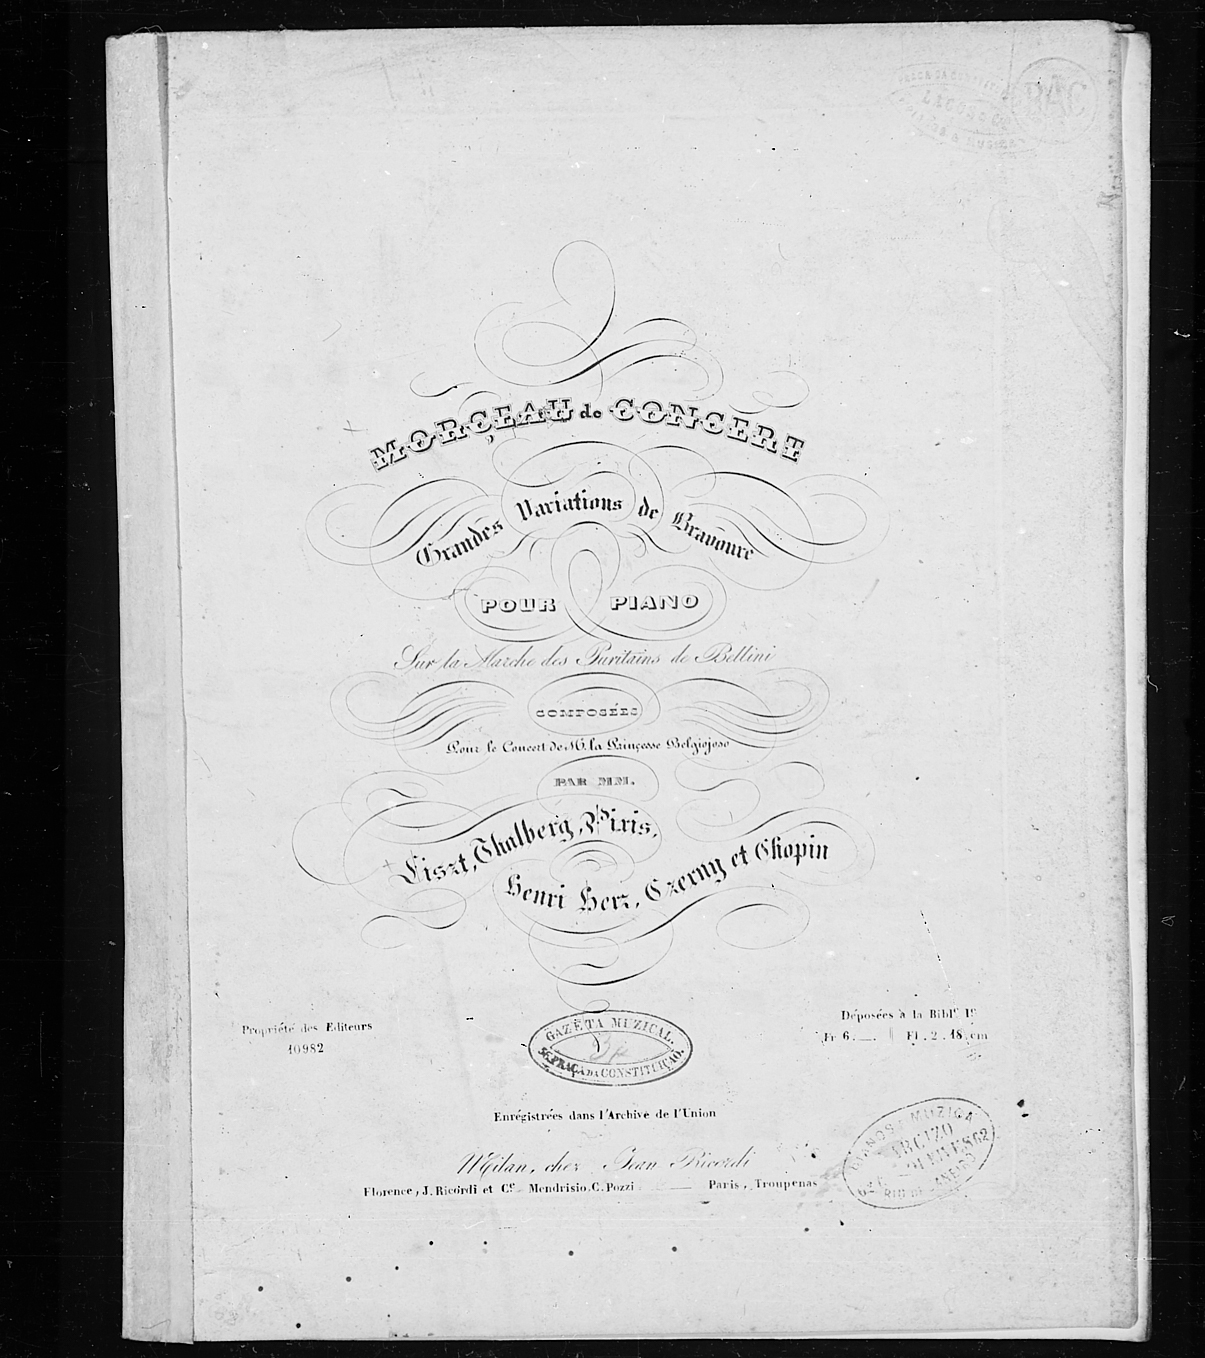 BAC
MORÇEAU de CONCERT
Grandes Variations de Bravoure
POUR PIANO
Sur la Marche des Puritains de Bellini
COMPOSÉES
Pour le Concert de M. la Prinçesse Belgiojoso
PAR MM.
Liszt, Thalberg, Pixis,
Henri Herz, Czerny et Chopin
Propriété des Editeurs
10982
Déposées à la Bibl. I.
Fr. 6. Fl. 2. 18. cm
GAZETA MUZICAL.
56, PRAÇA DA CONSTITUIÇAO.
Enrégistrées dans l'Archive de l'Union
Milan, chez Jean Ricordi
Florence, J. Ricordi et C. Mendrisio, C. Pozzi Paris, Troupenas
PIANOS MUZICA
RIO DE JANEIRO